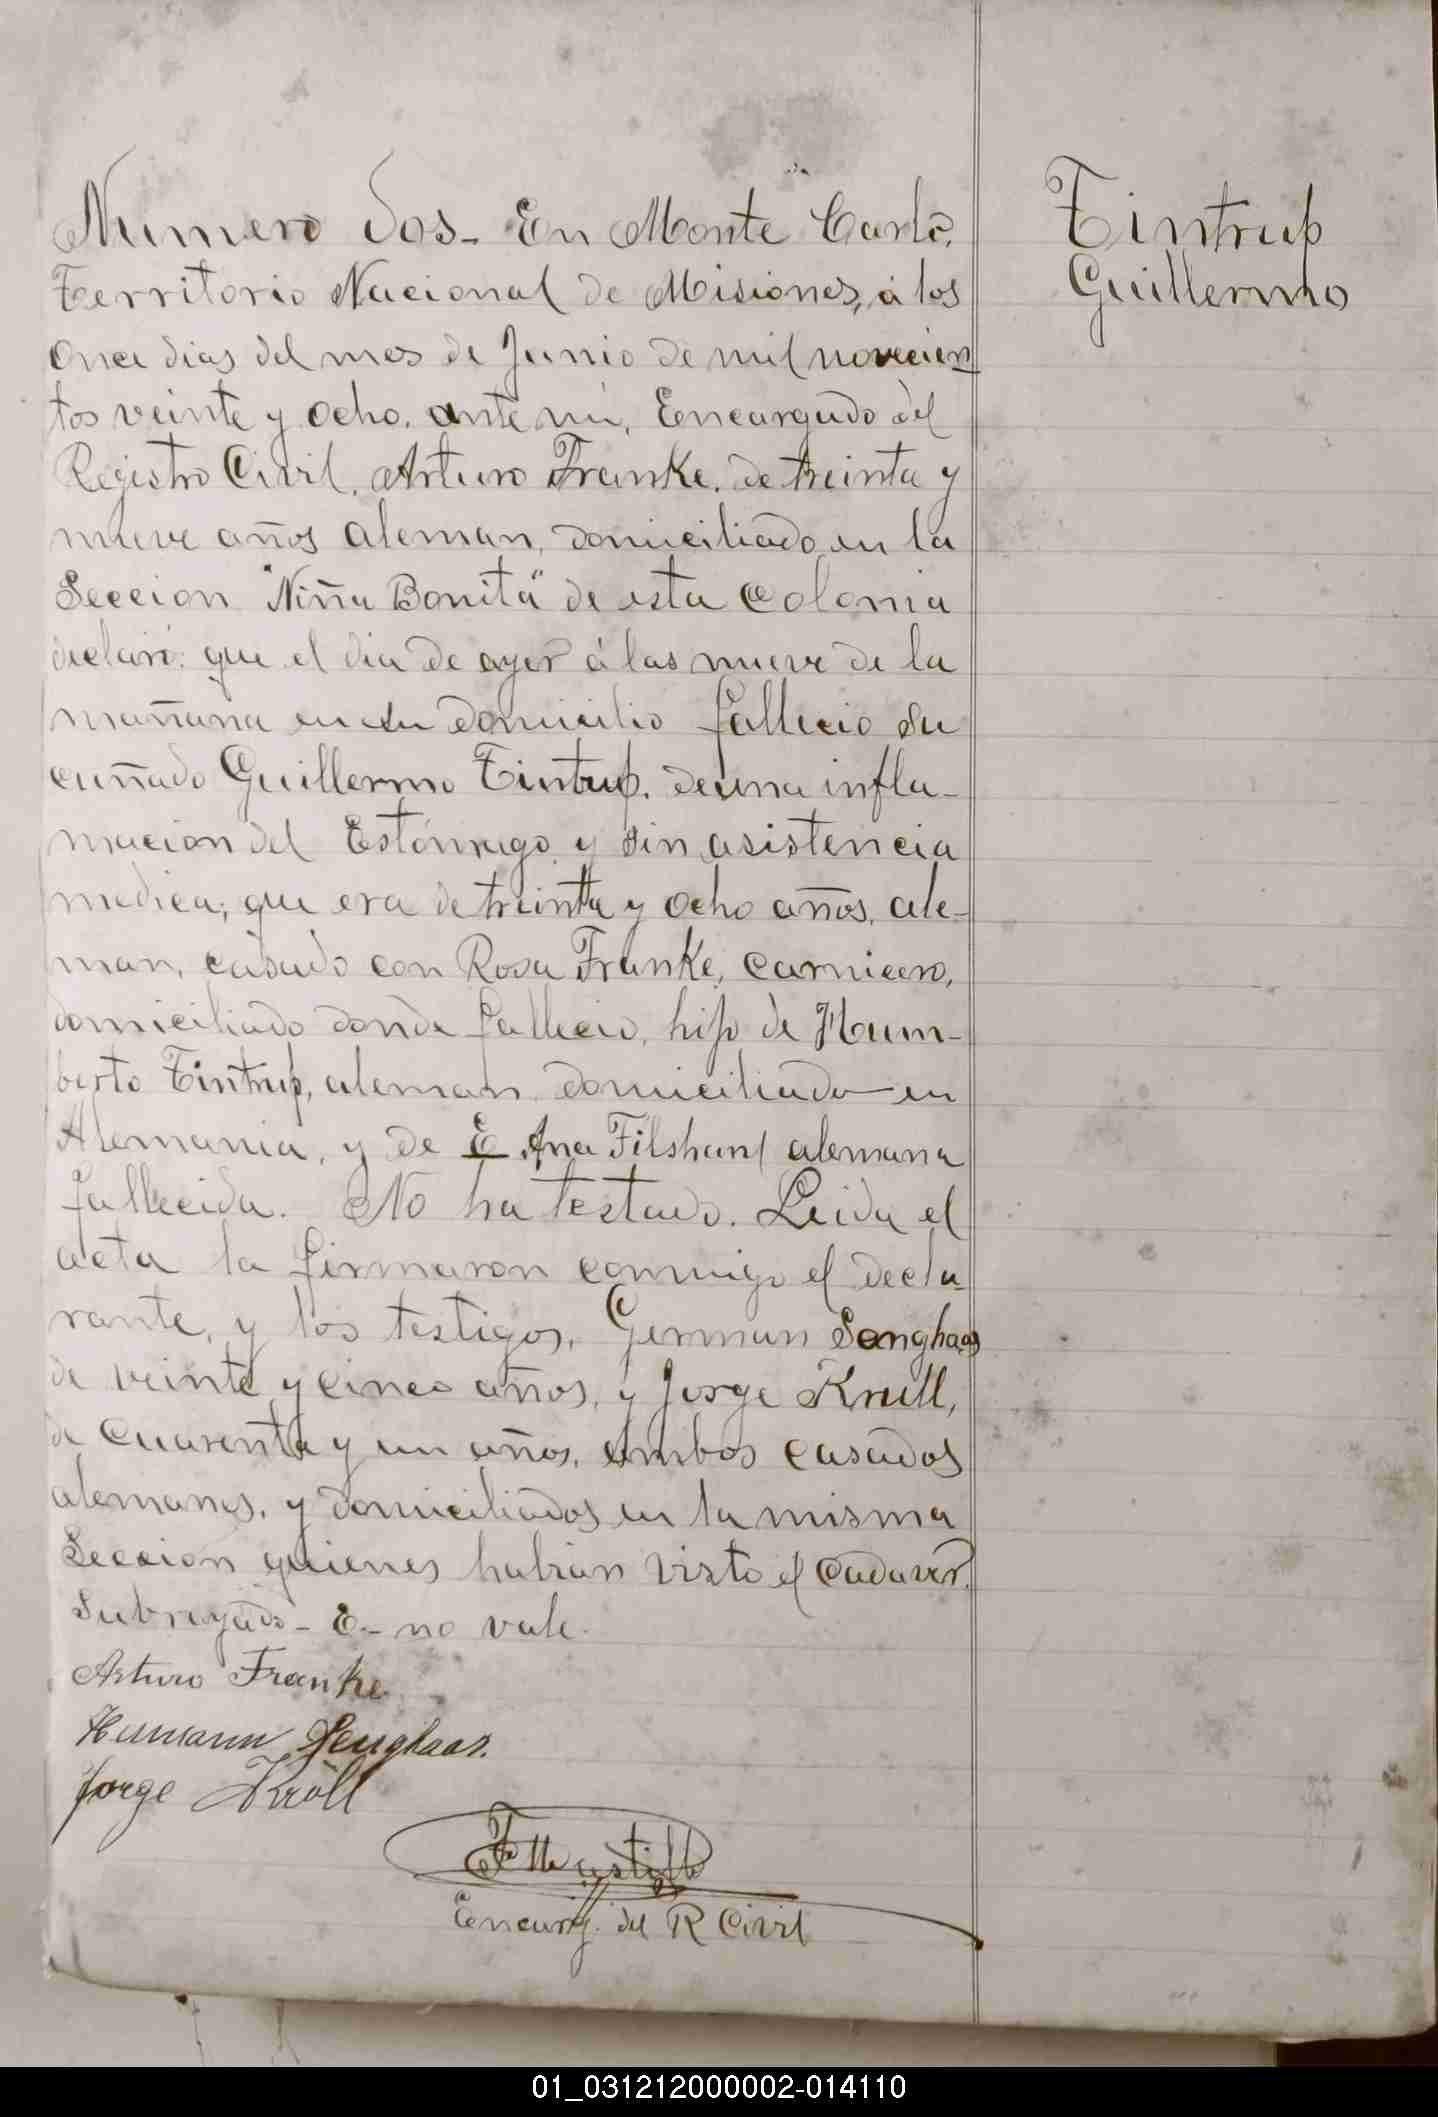 Numero dos - En Monte Carlo,
Territorio Nacional de Misiones, á los
once dias del mes de Junio de mil novecien
tos veinte y ocho, ante mi, Encargado del
Registro Civil, Arturo Franke, de treinta y
nueve años aleman, domiciliado en la
Seccion "Niña Bonita" de esta Colonia
declaró: que el dia de ayer á las nueve de la
mañana en su domicilio fallecio su
cuñado Guillermo Tintrup, de una infla-
macion del Estómago, y sin asistencia
medica; que era de treinta y ocho años, ale-
man, casado con Rosa Franke, carnicero,
domiciliado donde fallecio, hijo de Hum-
berto Tintrup, aleman domiciliado en
Alemania, y de E Ana Filshan alemana
fallecida. No ha testado. Leida el
acta la firmaron conmigo el decla-
rante, y los testigos, German Senghaas
de veinte y cinco años, y Jorge Krull,
de cuarenta y un años, ambos casados
alemanes, y domiciliados en la misma
Seccion quienes habian visto el cadaver.
Subrayado - E - no vale.
Arturo Franke
Hermann Senghaas.
Jorge Kröll
Encarg. del R Civil
Tintrup
Guillermo
01_031212000002-014110